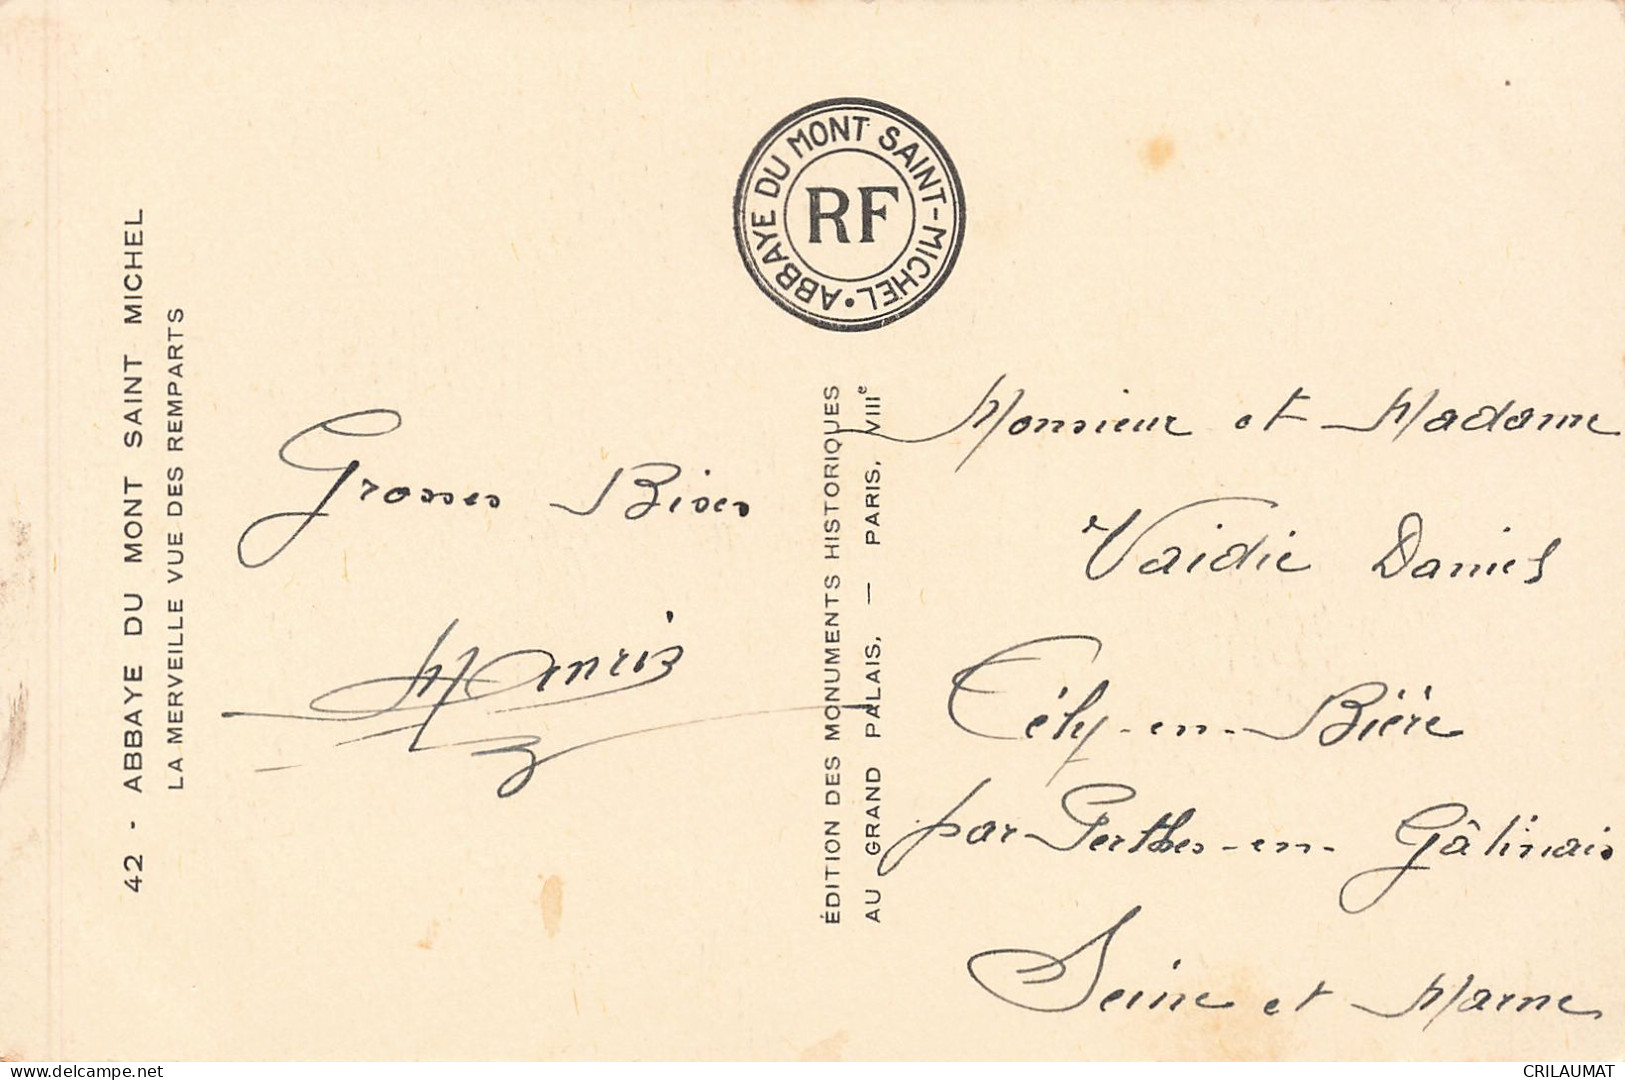 42 - ABBAYE DU MONT SAINT MICHEL
LA MERVEILLE VUE DES REMPARTS
ABBAYE DU MONT SAINT-MICHEL •
RF
Grosses Bises
Henri
ÉDITION DES MONUMENTS HISTORIQUES
AU GRAND PALAIS. — PARIS, VIIIe
Monsieur et Madame
Vaidie Daniel
Cély-en-Bière
par Perthes-en-Gâtinais
Seine et Marne
www.delcampe.net
CRILAUMAT